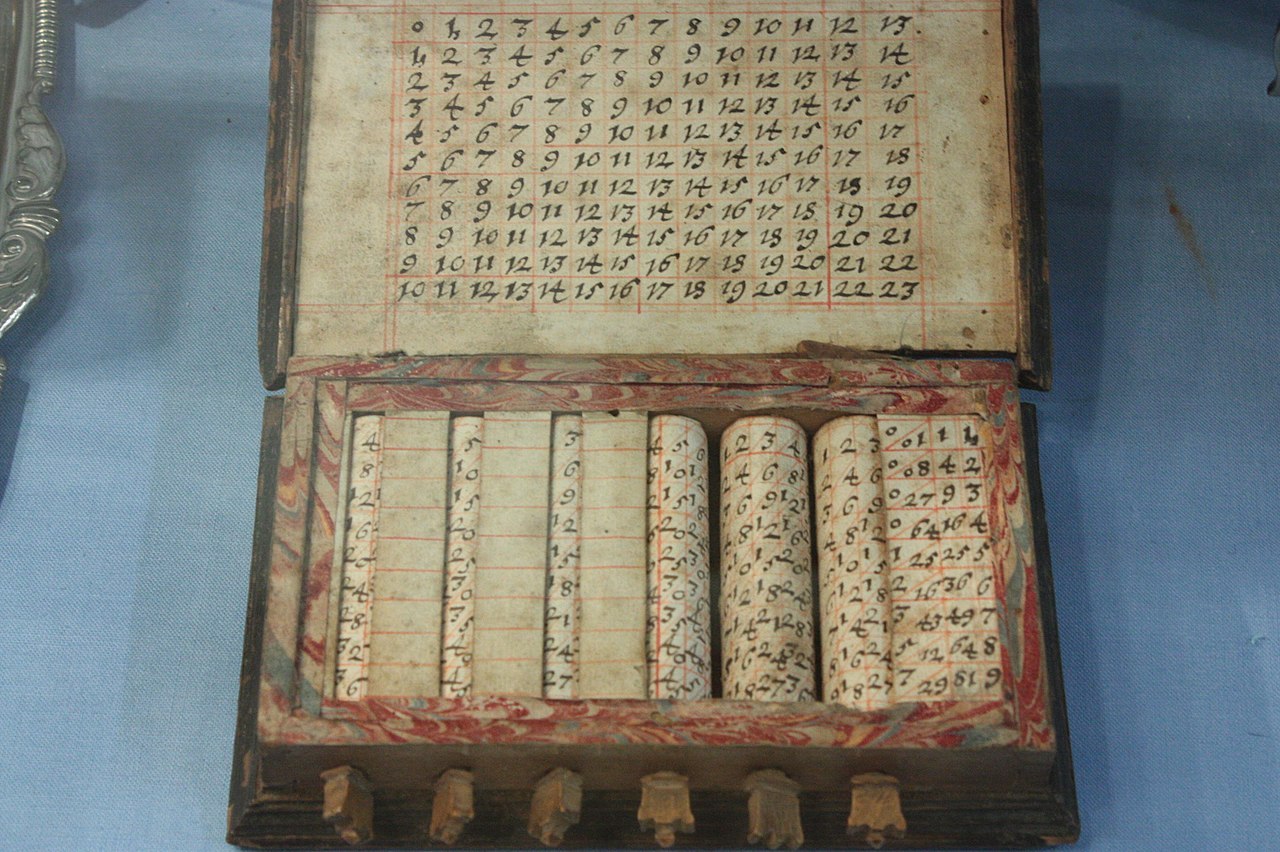 0 1 2 3 4 5 6 7 8 9 10 11 12 13.
1 2 3 4 5 6 7 8 9 10 11 12 13 14
2 3 4 5 6 7 8 9 10 11 12 13 14 15
3 4 5 6 7 8 9 10 11 12 13 14 15 16
4 5 6 7 8 9 10 11 12 13 14 15 16 17
5 6 7 8 9 10 11 12 13 14 15 16 17 18
6 7 8 9 10 11 12 13 14 15 16 17 18 19
7 8 9 10 11 12 13 14 15 16 17 18 19 20
8 9 10 11 12 13 14 15 16 17 18 19 20 21
9 10 11 12 13 14 15 16 17 18 19 20 21 22
10 11 12 13 14 15 16 17 18 19 20 21 22 23
4 5 3 4 5 2 3 4 1 2 3 0 01 1 1
8 10 6 8 10 4 6 8 2 4 6 0 08 4 2
12 15 9 15 6 9 12 3 6 9 0 27 9 3
16 20 12 20 8 12 4 8 12 0 64 16 4
20 25 15 25 15 5 10 15 1 25 25 5
24 30 18 30 12 18 12 18 2 16 36 6
28 35 21 35 14 21 28 14 21 3 43 49 7
32 24 16 24 32 16 24 5 12 64 8
36 45 27 18 27 18 27 7 29 81 9